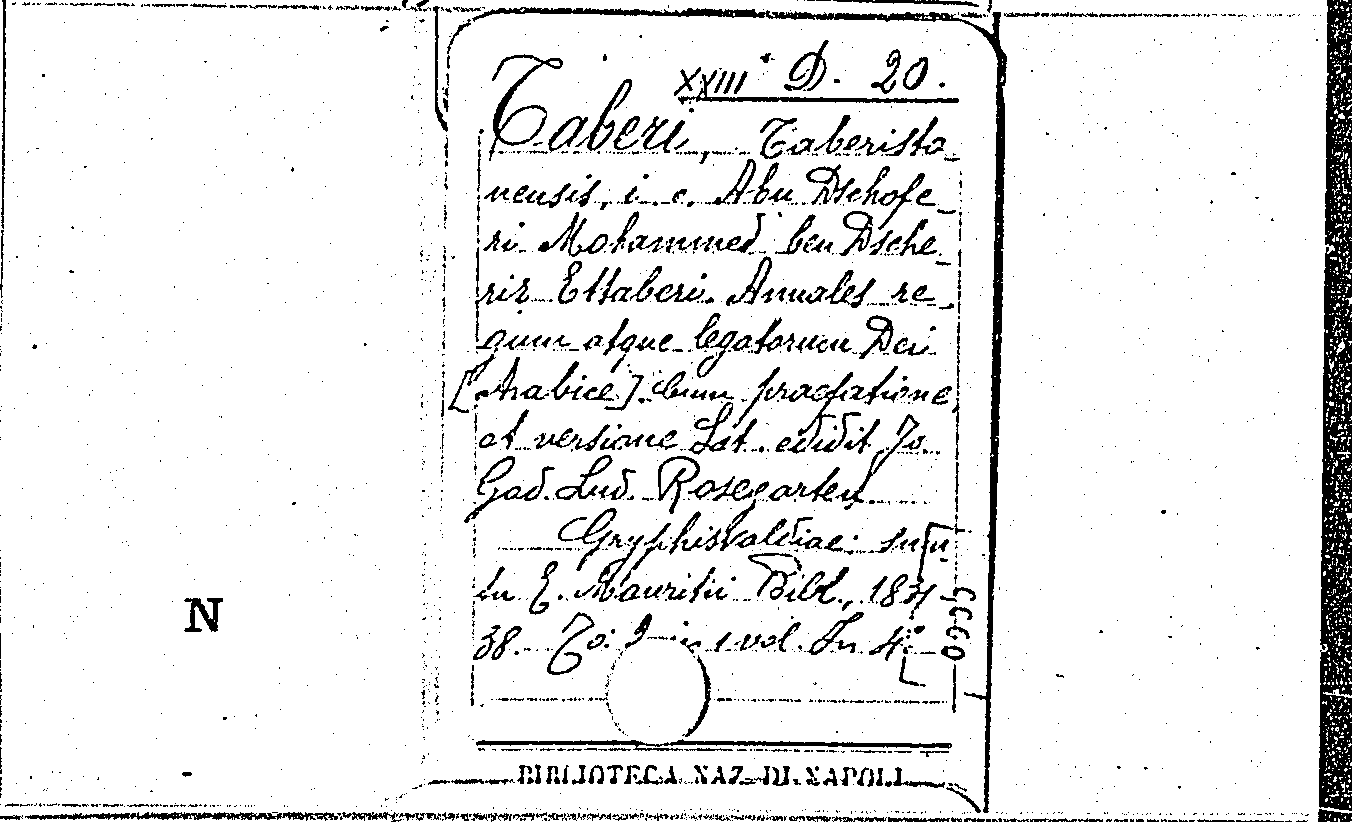 XXIII D. 20.
Taberi, Taberista-
nensis, i. e. Abu Dschofe-
ri Mohammed ben Dsche-
rir Ettaberi. Annales re-
gum atque legatorum Dei
[Arabice]. Cum praefatione,
et versione Lat. edidit Jo.
God. Lud. Rosegarten
Gryphisvaldiae: sum-
tu E. Mauritii Bibl., 1831
38. To: 2 in 1 vol. In 4°
N
BIBLIOTECA NAZ. DI NAPOLI